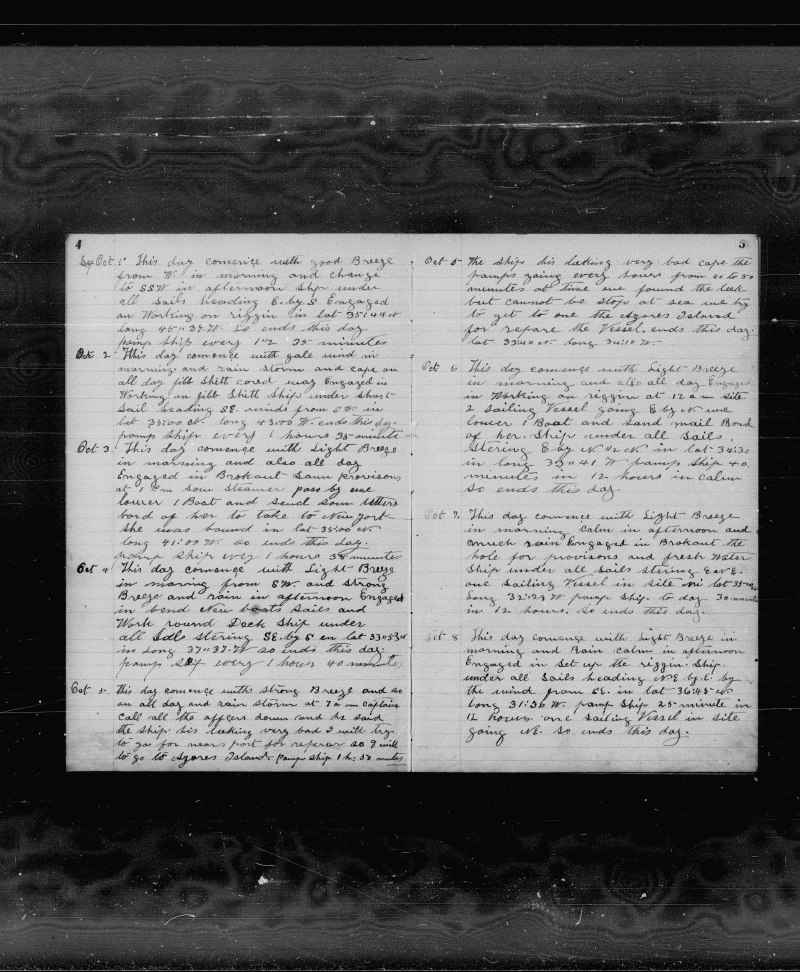 4
Oct 1" This day comence with good Breeze
from W. in morning and change
to SSW in afternoon Ship under
all Sails heading E. by S Engaged
an Working on riggin in lat 35:44 N
long 45" 37 W. So ends this day.
pamp Ship every 1"2 35 minutes
Oct 2 This day comence with gale wind in
morning and rain Storm and cape on
all day
Working on Ship under Short
Sail heading SE. winds from SW in
lat 35:00 N. long 43:00 W. ends this day.
pamp Ship every 1 hours 35 minute
Oct 3. This day comence with Light Breeze
in morning and also all day
Engaged in Brokout Som provisons
at 1 Pm Saw Steamer pass by we
louer 1 Boat and Send Som letters
bord of her to take to New York
She was bound in lat 35:00 N.
long 41:00 W. so ends this day.
pamp Ship every 1 hours 38 minutes
Oct 4 This day comence with Light Breeze
in morning from SW. and Strong
Breeze and rain in afternoon Engaged
in bend New boats Sails and
Work round Deck Ship under
all Sails stering SE. by S in lat 33"53 N
in Long 37"37 W so ends this day.
pamp Ship every 1 hours 40 minutes
Oct 5. this day comence with Strong Breeze and so
on all day and rain Storm at 7 a m captain
call all the officers down and he said
the Ship his leeking very bad I will try
to go for nears port for reparar so I will
to go to Azores Island. Pamp Ship 1 h: 50 minutes
5
Oct 5 The Ship his leeking very bad cape the
pamps going every hours from 40 to 50
minutes at time we found the leek
but cannot be Stop at sea we try
to get to one the Azores Island
for repare the Vessel. ends this day.
lat 33:40 N. long 34:10 W.
Oct 6 This day comence with Light Breeze
in morning and also all day Engaged
in Working on riggin at 12 a m site
2 Sailing Vessel going E by N we
louer 1 Boat and Sand mail Bord
of her. Ship under all Sails
Stering E by N 1/2 N in lat 34:30
in long 33"41 W pamp Ship 40
minutes in 12 hours in Calm
So ends this day
Oct 7. This day comence with Light Breeze
in morning Calm in afternoon and
much rain Engaged in Brokout the
hole for provisons and fresh Water
Ship under all Sails stering ENE.
one Sailing Vessel in site in lat
Long 32"29 W pamp Ship to day 30 minute
in 12 hours. So ends this day.
Oct 8 This day comence with Light Breeze in
morning and Rain calm in afternoon
Engaged in Set up the riggin. Ship
under all Sails heading NE by E. by
the wind from SE. in lat 36:45 N.
long 31:36 W. pamp Ship 25 minute in
12 hours one Sailing Vessel in Site
going NE. So ends this day.